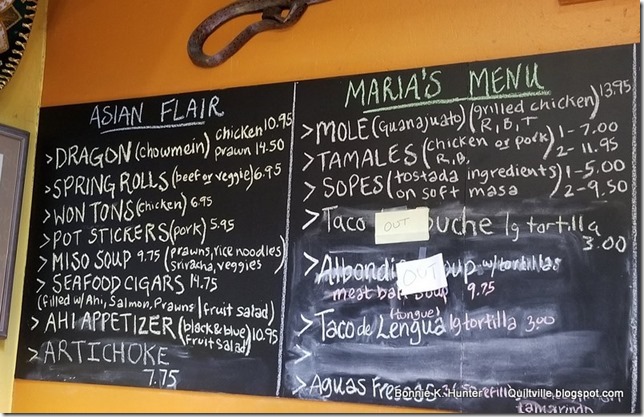 ASIAN FLAIR
> DRAGON (chowmein) chicken 10.95
prawn 14.50
> SPRING ROLLS (beef or veggie) 6.95
> WON TONS (chicken) 6.95
> POT STICKERS (pork) 5.95
> MISO SOUP 9.75 (prawns, rice noodles)
sriracha, veggies
> SEAFOOD CIGARS 14.75
(filled w/ Ahi, Salmon, Prawns / fruit salad)
> AHI APPETIZER (black & blue) 10.95
fruit salad)
> ARTICHOKE
7.75
MARIA'S MENU
> MOLE (Guanajuato) (grilled chicken) 13.95
R, B, T
> TAMALES (chicken or pork) 1-7.00
R, B, 2-11.95
> SOPES (tostada ingredients) 1-5.00
on soft masa 2-9.50
> Taco OUT uche lg tortilla
3.00
> Albondi OUT oup w/tortillas
meat ball soup 9.75
(tongue)
> Taco de Lengua lg tortilla 3.00
>
> Aguas Frescas
tamarind
Bonnie K. Hunter Quiltville.blogspot.com